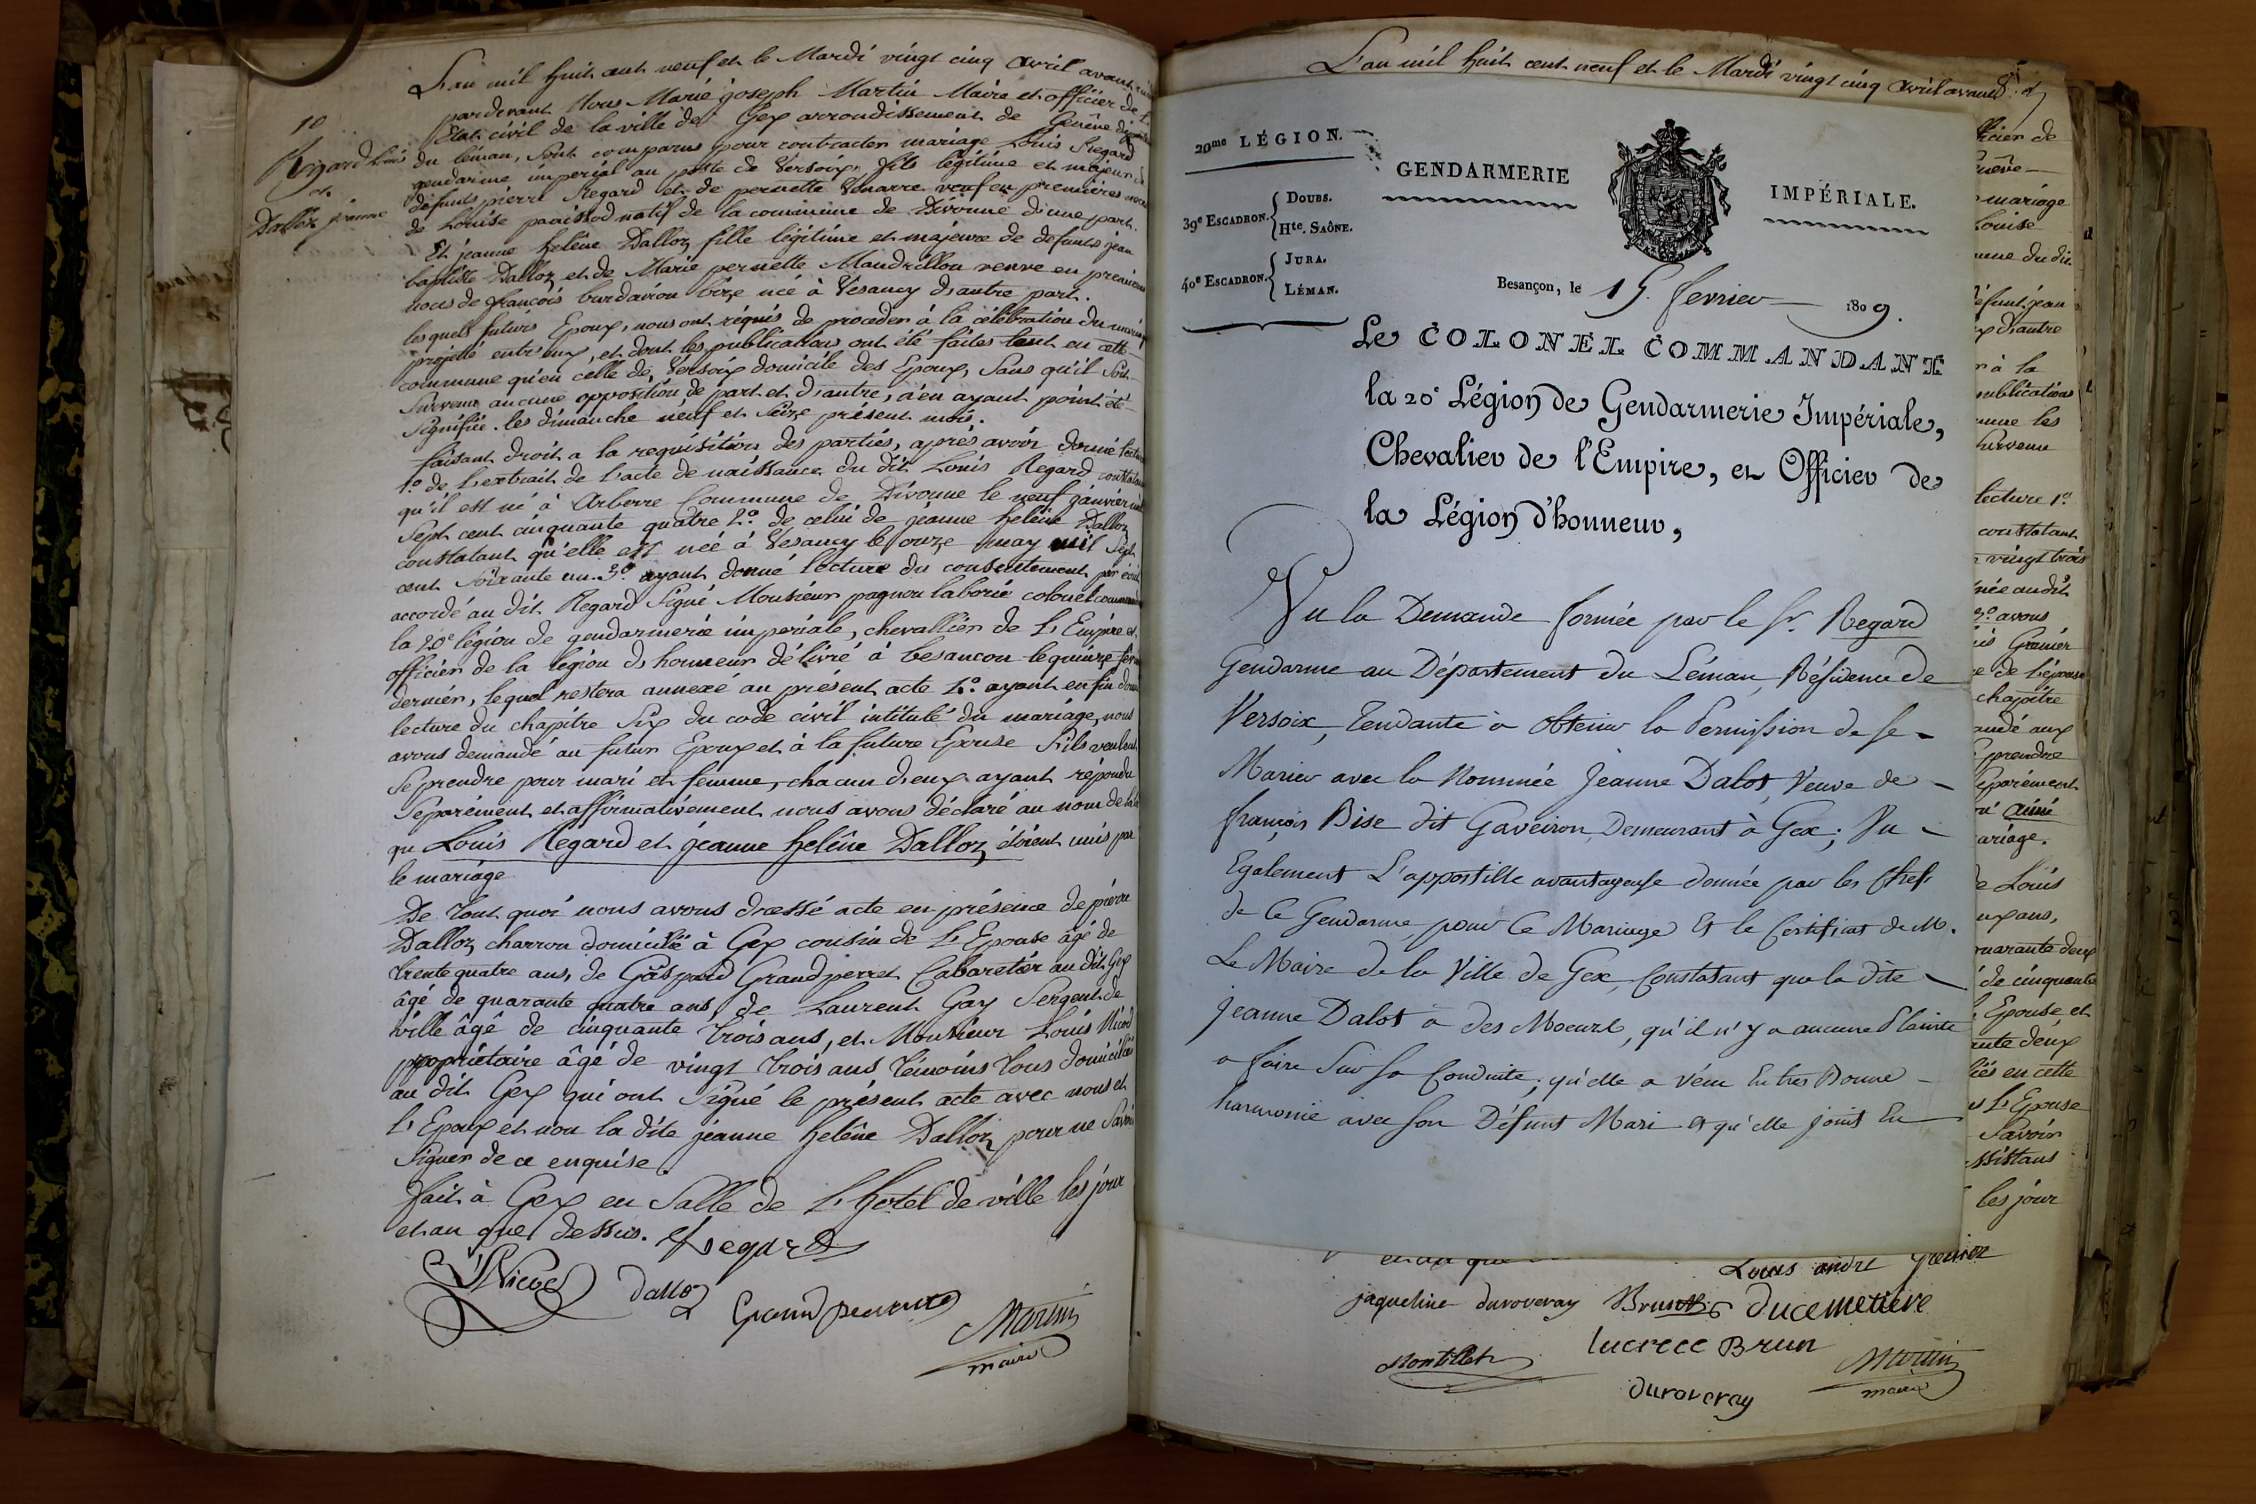 L'an mil huit cent neuf et le Mardi vingt cinq avril avant
pardevant Nous Marie joseph Martin Maire et officier de L'
Etat civil de la ville de Gex arrondissement de Genêve
10
Regard Louis
et
Dalloz jeanne
du léman, sont comparus pour contracter mariage Louis Regard
gendarme imperial au poste de Versoix, fils légitime et majeur de
défunts pierre Regard et de pernette Vuarre veuf en premières noces
de Louise paaissod natif de la commune de Divonne d'une part.
Et jeanne helêne Dalloz fille légitime et majeure de défunts jean
baptiste Dalloz et de Marie pernette Maudrillon veuve en premieres
noces de françois burdairon bize née à Vesancy d'autre part.
lesquels futurs Epoux, nous ont réquis de proceder à la célébration du mariage
projetté entr'eux, et dont les publications ont été faites tant en cette
commune qu'en celle de Versoix domicile des Epoux, sans qu'il soit
survenu aucune opposition, de part et d'autre, n'en ayant point été
signifiée. les dimanche neuf et seize présent mois.
faisant droit a la requisition des parties, aprés avoir donné lecture
1.º de L'extrait de L'acte de naissance du dit Louis Regard constatant
qu'il est né à Arberre Commune de Divonne le neuf janvier mil
sept cent cinquante quatre 2.º de celui de jeanne helêne Dalloz
constatant qu'elle est née à Vesancy le onze may mil sept
cent soixante un. 3.º ayant donné lecture du consentement par écrit
accordé au dit Regard signé Monsieur pagnon laborie colonel commandant
la 20e légion de gendarmerie imperiale, chevallier de L'Empire et
officier de la légion d'honneur délivré à besançon le quinze fevrier
dernier, lequel restera annexé au présent acte 4.º ayant enfin donné
lecture du chapitre six du code civil intitulé du mariage, nous
avons demandé au futur Epoux et à la future Epouse s'ils veulent
se prendre pour mari et femme, chacun d'eux ayant répondu
séparément et affirmativement nous avons déclaré au nom de la loi
qu Louis Regard et jeanne helêne Dalloz étoient unis par
le mariage
De tout quoi nous avons dressé acte en présence de pierre
Dalloz charron domicilié à Gex cousin de L'Epouse âgé de
trente quatre ans, de Gaspard Grandperret Cabaretier au dit Gex
âgé de quarante quatre ans, de Laurent Gay Sergent de
ville âgé de cinquante trois ans, et Monsieur Louis Nicod
propriétaire âgé de vingt trois ans témoins tous domiciliés
au dit Gex qui ont signé le présent acte avec nous et
L'Epoux et non la dite jeanne helêne Dalloz pour ne savoir
signer de ce enquise.
fait à Gex en salle de L'hotel de ville les jour
et an que dessus. Regard
Nicod Dalloz Grandperret Martin
maire
L'an mil huit cent neuf et le Mardi vingt cinq avril avant
20me LÉGION.
39e ESCADRON. DOUBS.
Hte. SAÔNE.
40e ESCADRON. JURA.
LÉMAN.
GENDARMERIE IMPÉRIALE.
Besançon, le 15. fevrier 1809.
Le COLONEL COMMANDANT
la 20e Légion de Gendarmerie Impériale,
Chevalier de l'Empire, et Officier de
la Légion d'honneur,
Vu la Demande formée par le Sr. Regard
Gendarme au Département du Léman, Résidence de
Versoix, tendante à obtenir la Permission de se
Marier avec la Nommée Jeanne Dalos, Veuve de
françois Bise dit Gaveiron, Demeurant à Gex; Vu
Egalement L'appostille avantageuse donnée par les Chefs
de Ce Gendarme pour Ce Mariage Et le Certificat de M.
Le Maire de la Ville de Gex, Constatant que la dite
Jeanne Dalos a des Moeurs, qu'il n'y a aucune Plainte
a faire Sur sa Conduite; qu'elle a vécu En très Bonne
harmonie avec son Défunt Mari et qu'elle jouit En
mariage
Louise
d'autre
à la
publications
les
survenu
lecture 1.º
constatant
vingt trois
avons
Grenier
de L'épouse
chapitre
prendre
séparément
aimé
mariage.
de Louis
ans,
quarante deux
de cinquante
Epouse, et
en cette
L'Epouse
Savoir
les jour
et an que
Louis andre Grenier
jaqueline duroveray Brun ducemetiere
lucrece Brun
Montillet Martin
maire
duroveray